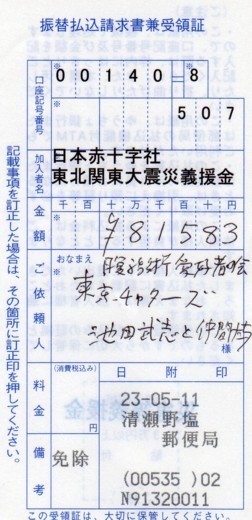 振替払込請求書兼受領証
口座記号番号
※
00140-8
507
加入者名
日本赤十字社
東北関東大震災義援金
金額
千 百 十 万 千 百 十 円
※
¥781583
ご依頼人
おなまえ
※
東京チャターズ
池田武志と仲間達
様
料金
(消費税込み)
円
日附印
23-05-11
清瀬野塩
郵便局
(00535 )02
N91320011
備考
免除
記載事項を訂正した場合は、その箇所に訂正印を押してください。
この受領証は、大切に保管してください。